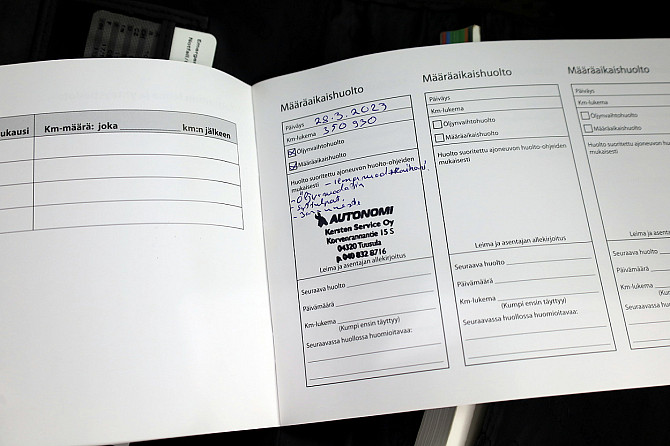 Emergen
ukausi
Km-määrä: joka ____________ km:n jälkeen
Määräaikaishuolto
Päiväys 28.3.2023
Km-lukema 350 930
Öljynvaihtohuolto
Määräaikaishuolto
Huolto suoritettu ajoneuvon huolto-ohjeiden
mukaisesti
AUTONOMI
Kersten Service Oy
Korvenrannantie 15 S
04320 Tuusula
p. 040 832 8716
Leima ja asentajan allekirjoitus
Seuraava huolto
Päivämäärä
Km-lukema
(Kumpi ensin täyttyy)
Seuraavassa huollossa huomioitavaa:
Määräaikaishuolto
Päiväys
Km-lukema
Öljynvaihtohuolto
Määräaikaishuolto
Huolto suoritettu ajoneuvon huolto-ohjeiden
mukaisesti
Leima ja asentajan allekirjoitus
Seuraava huolto
Päivämäärä
Km-lukema
(Kumpi ensin täyttyy)
Seuraavassa huollossa huomioitavaa:
Määräaikaishuolto
Päiväys
Km-lukema
Öljynvaihtohuolto
Määräaikaishuolto
Huolto suoritettu ajoneuvon
mukaisesti
Leima ja as
Seuraava huolto
Päivämäärä
Km-lukema
(Kum
Seuraavassa huol